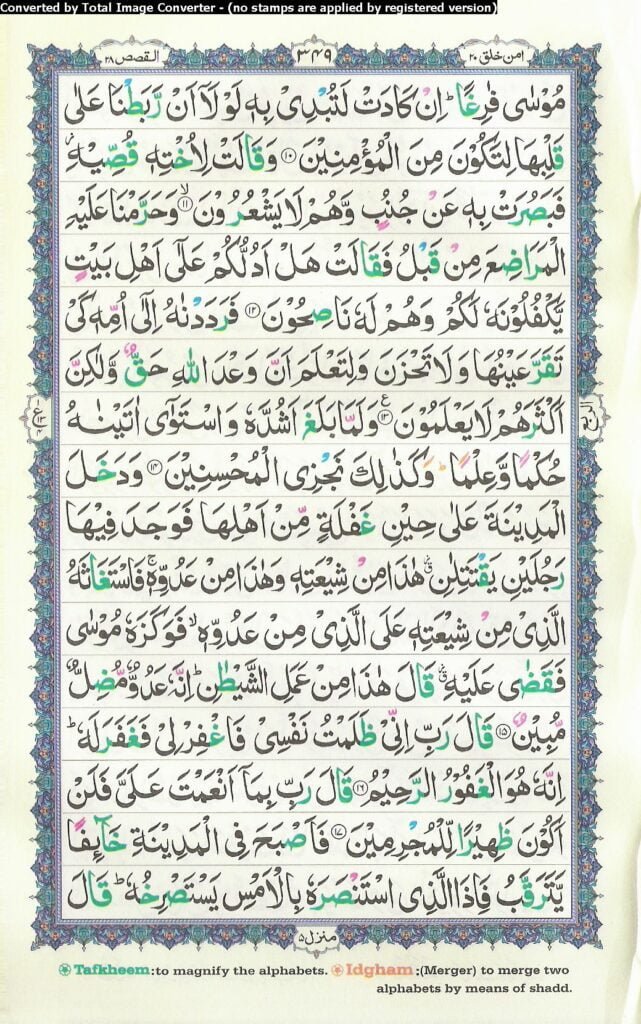 Converted by Total Image Converter - (no stamps are applied by registered version)
القصص ٢٨
٣٤٩
امن خلق ٢٠
مُوۡسٰى فٰرِغًا ؕ اِنۡ كَادَتۡ لَتُبۡدِىۡ بِهٖ لَوۡلَاۤ اَنۡ رَّبَطۡنَا عَلٰى
قَلۡبِهَا لِتَكُوۡنَ مِنَ الۡمُؤۡمِنِيۡنَ ﴿۱۰﴾ وَقَالَتۡ لِاُخۡتِهٖ قُصِّيۡهِ ۫
فَبَصُرَتۡ بِهٖ عَنۡ جُنُبٍ وَّهُمۡ لَا يَشۡعُرُوۡنَ ۙ‏ ﴿۱۱﴾ وَحَرَّمۡنَا عَلَيۡهِ
الۡمَرَاضِعَ مِنۡ قَبۡلُ فَقَالَتۡ هَلۡ اَدُلُّكُمۡ عَلٰٓى اَهۡلِ بَيۡتٍ
يَّكۡفُلُوۡنَهٗ لَكُمۡ وَهُمۡ لَهٗ نَاصِحُوۡنَ ﴿۱۲﴾ فَرَدَدۡنٰهُ اِلٰٓى اُمِّهٖ كَىۡ
تَقَرَّ عَيۡنُهَا وَلَا تَحۡزَنَ وَلِتَعۡلَمَ اَنَّ وَعۡدَ اللّٰهِ حَقٌّ وَّلٰكِنَّ
اَكۡثَرَهُمۡ لَا يَعۡلَمُوۡنَ ﴿۱۳﴾ ع وَلَمَّا بَلَغَ اَشُدَّهٗ وَاسۡتَوٰٓى اٰتَيۡنٰهُ
حُكۡمًا وَّعِلۡمًا ؕ وَكَذٰلِكَ نَجۡزِى الۡمُحۡسِنِيۡنَ ﴿۱۴﴾ وَدَخَلَ
الۡمَدِيۡنَةَ عَلٰى حِيۡنِ غَفۡلَةٍ مِّنۡ اَهۡلِهَا فَوَجَدَ فِيۡهَا
رَجُلَيۡنِ يَقۡتَتِلٰنِ ۫ هٰذَا مِنۡ شِيۡعَتِهٖ وَهٰذَا مِنۡ عَدُوِّهٖ ۚ فَاسۡتَغَاثَهُ
الَّذِىۡ مِنۡ شِيۡعَتِهٖ عَلَى الَّذِىۡ مِنۡ عَدُوِّهٖ ۙ فَوَكَزَهٗ مُوۡسٰى
فَقَضٰى عَلَيۡهِ ۫ قَالَ هٰذَا مِنۡ عَمَلِ الشَّيۡطٰنِ ؕ اِنَّهٗ عَدُوٌّ مُّضِلٌّ
مُّبِيۡنٌ ﴿۱۵﴾ قَالَ رَبِّ اِنِّىۡ ظَلَمۡتُ نَفۡسِىۡ فَاغۡفِرۡ لِىۡ فَغَفَرَ لَهٗ ؕ
اِنَّهٗ هُوَ الۡغَفُوۡرُ الرَّحِيۡمُ ﴿۱۶﴾ قَالَ رَبِّ بِمَاۤ اَنۡعَمۡتَ عَلَىَّ فَلَنۡ
اَكُوۡنَ ظَهِيۡرًا لِّلۡمُجۡرِمِيۡنَ ﴿۱۷﴾ فَاَصۡبَحَ فِى الۡمَدِيۡنَةِ خَآئِفًا
يَّتَرَقَّبُ فَاِذَا الَّذِى اسۡتَنۡصَرَهٗ بِالۡاَمۡسِ يَسۡتَصۡرِخُهٗ ؕ قَالَ
منزل ۵
Tafkheem:to magnify the alphabets. Idgham:(Merger) to merge two
alphabets by means of shadd.